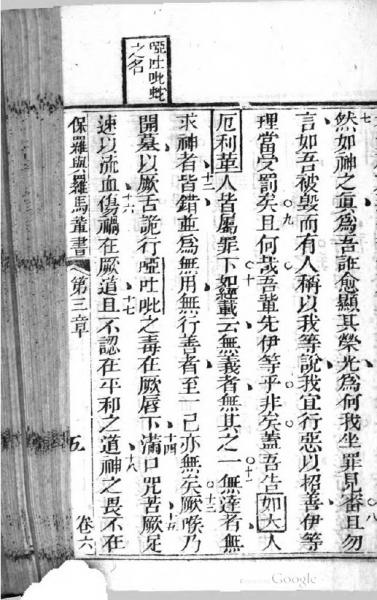 啞吐吡蛇
之名
七
然如神之眞爲吾誑愈顯其榮光爲何我坐罪見審且勿
八
言如吾被毀而有人稱以我等說我宜行惡以招善伊等
九
理當受罰矣且何哉吾輩先伊等乎非矣蓋吾告如大人
十 十一
厄利革人皆屬罪下如經載云無義者無其之一無達者無
十二 十三
求神者皆錯並爲無用無行善者至一己亦無矣厥喉乃
十四 十五
開墓以厥舌詭行啞吐吡之毒在厥唇下滿口咒苦厥足
十六 十七 十八
速以流血傷禍在厥道且不認在平和之道神之畏不在
保羅與羅馬輩書 第三章 五 卷六
Google